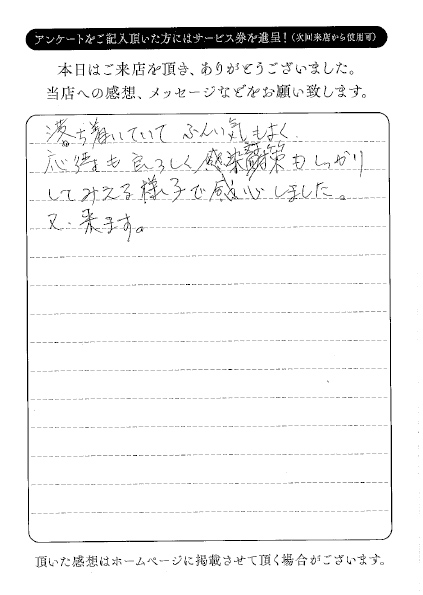 アンケートをご記入頂いた方にはサービス券を進呈！（次回来店から使用可）
本日はご来店を頂き、ありがとうございました。
当店への感想、メッセージなどをお願い致します。
落ち着いていて ふんい気もよく
応待も良ろしく 感染対策もしっかり
してみえる様子で感心しました。
又、来ます。
頂いた感想はホームページに掲載させて頂く場合がございます。